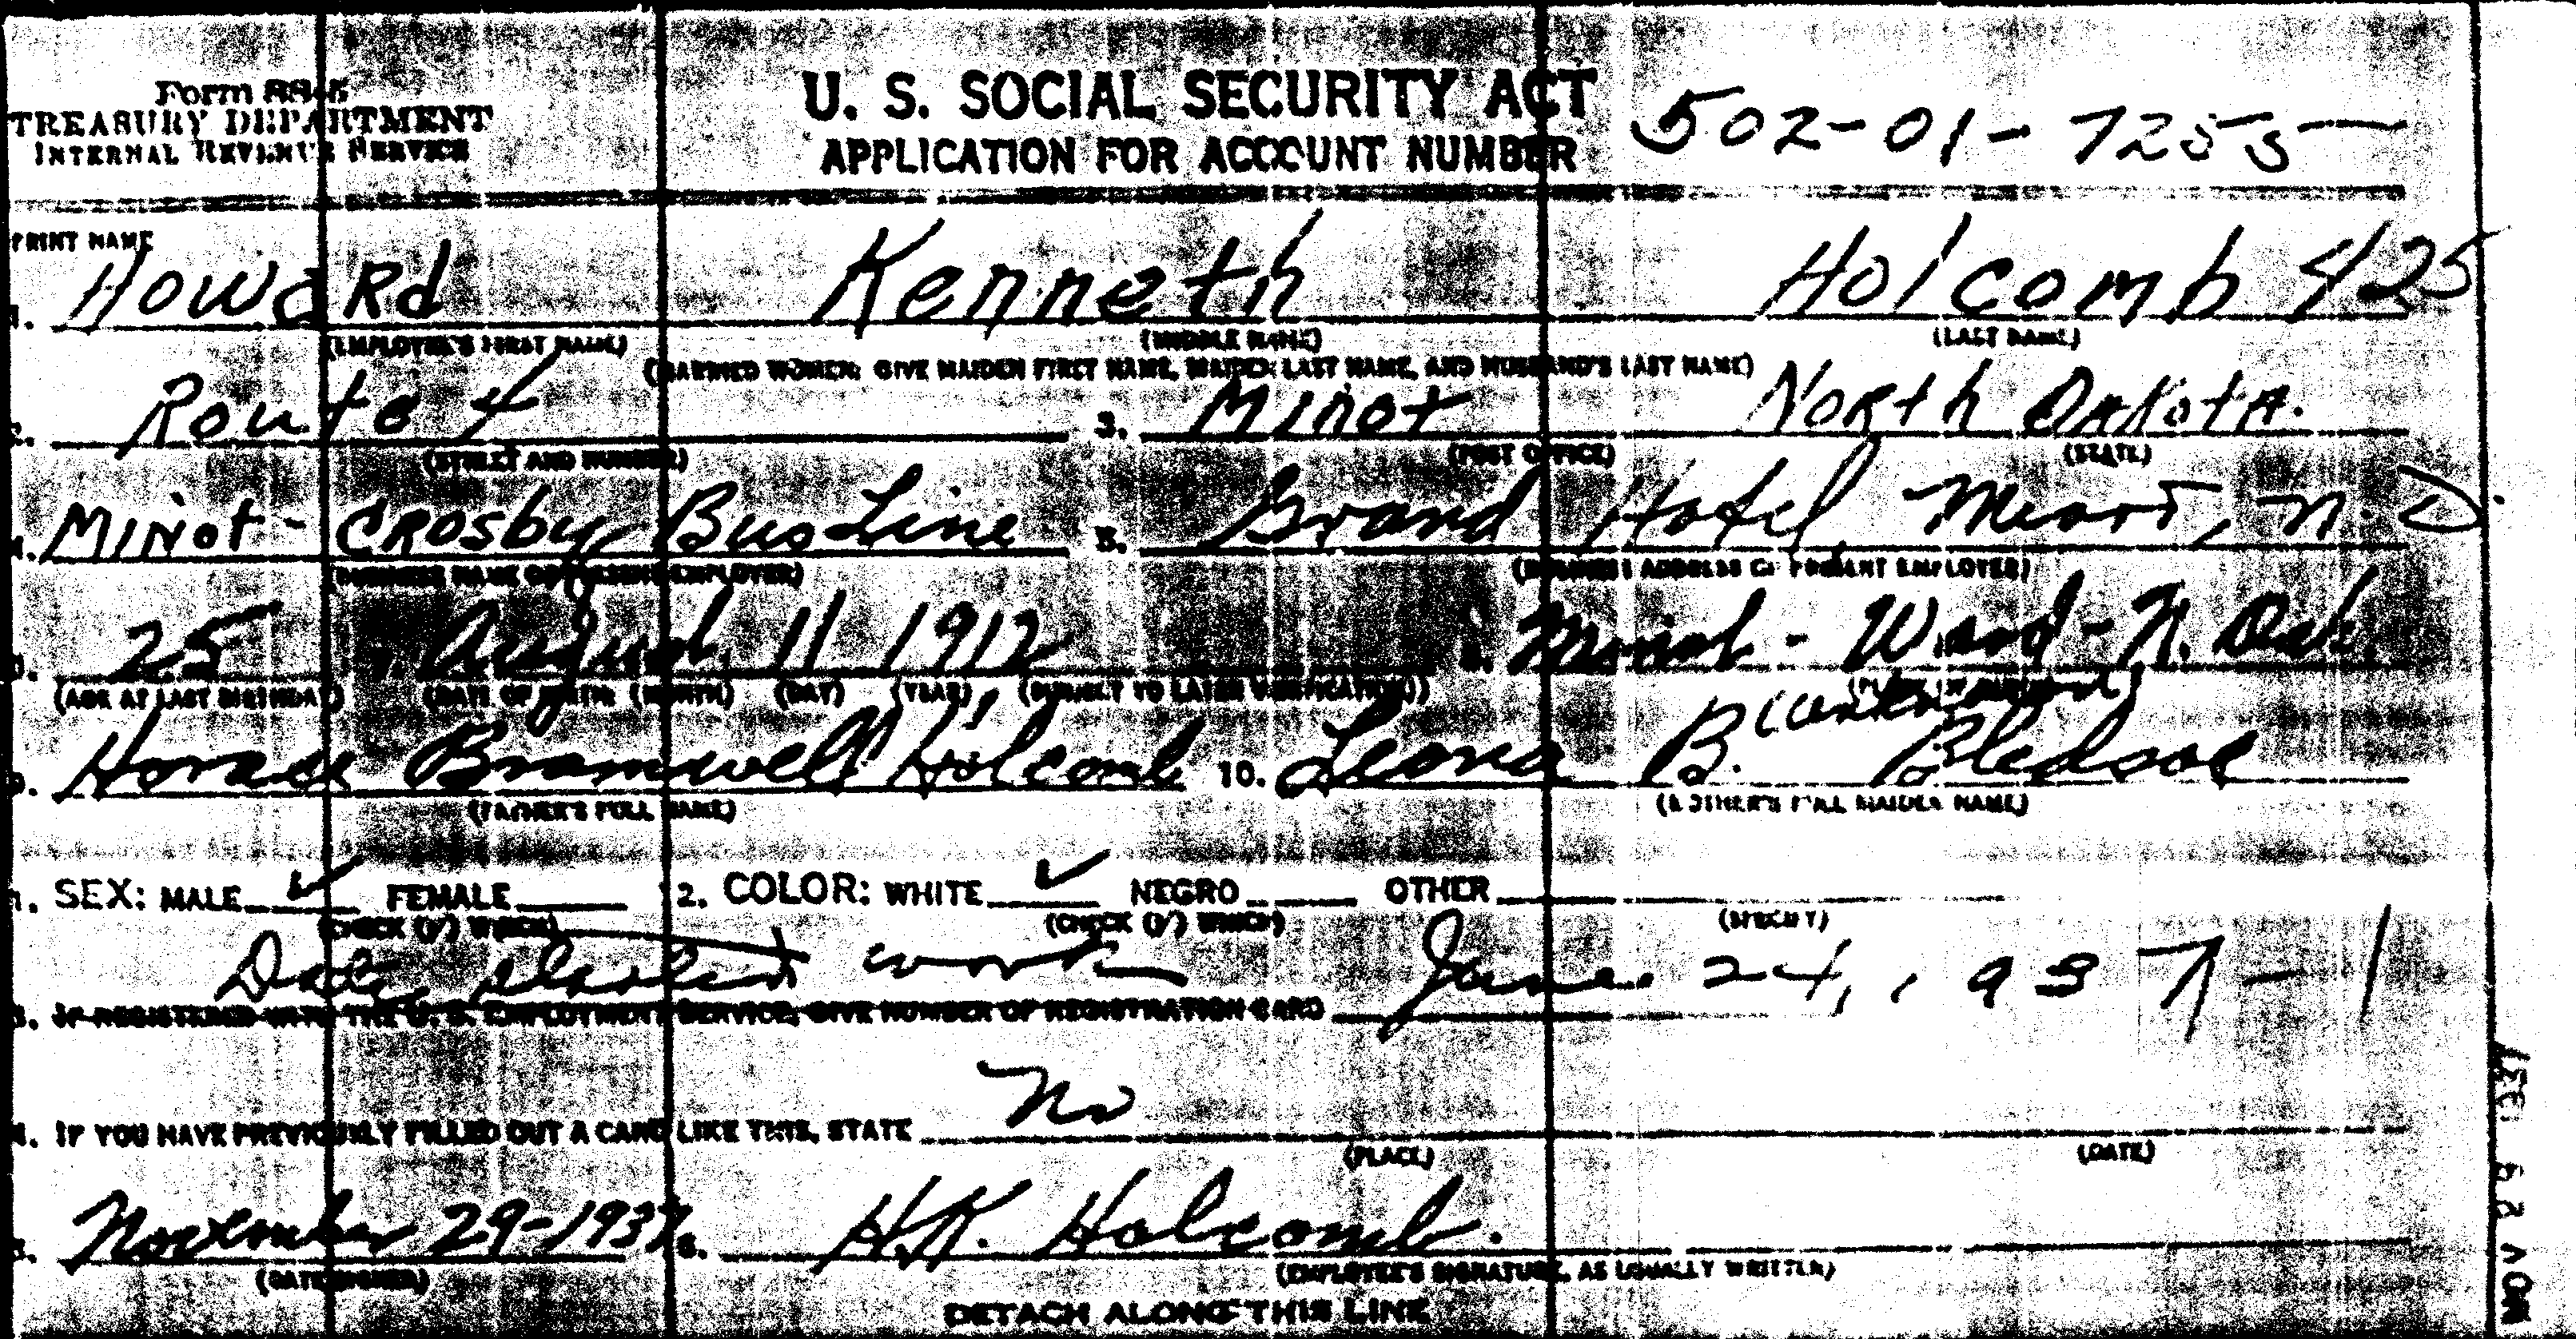 Form SS-5
TREASURY DEPARTMENT
INTERNAL REVENUE SERVICE
U. S. SOCIAL SECURITY ACT
APPLICATION FOR ACCOUNT NUMBER
502-01-7255
PRINT NAME
1. Howard Kenneth Holcomb 425
(EMPLOYEE'S FIRST NAME) (MIDDLE NAME) (LAST NAME)
(MARRIED WOMEN: GIVE MAIDEN FIRST NAME, MAIDEN LAST NAME, AND HUSBAND'S LAST NAME)
2. Route 4 3. Minot North Dakota.
(STREET AND NUMBER) (POST OFFICE) (STATE)
4. Minot - Crosby Bus Line 5. Grand Hotel Minot, N. D.
(BUSINESS NAME OF PRESENT EMPLOYER) (BUSINESS ADDRESS OF PRESENT EMPLOYER)
25 August 11 1912 Minot - Ward - N. Dak.
(AGE AT LAST BIRTHDAY) (DATE OF BIRTH: (MONTH) (DAY) (YEAR) (SUBJECT TO LATER VERIFICATION))
9. Horace Bramwell Holcomb 10. Leona B. Bledsoe
(FATHER'S FULL NAME) (MOTHER'S FULL MAIDEN NAME)
1. SEX: MALE ✓ FEMALE 12. COLOR: WHITE ✓ NEGRO OTHER
(CHECK (✓) WHICH) (CHECK (✓) WHICH) (SPECIFY)
Date started work June 24, 1937 - 1
3. IF REGISTERED WITH THE U. S. EMPLOYMENT SERVICE, GIVE NUMBER OF REGISTRATION CARD
4. IF YOU HAVE PREVIOUSLY FILLED OUT A CARD LIKE THIS, STATE No
(PLACE) (DATE)
5. November 29-1937 6. H.K. Holcomb.
(DATE SIGNED) (EMPLOYEE'S SIGNATURE, AS USUALLY WRITTEN)
DETACH ALONG THIS LINE
NOV 29 1937